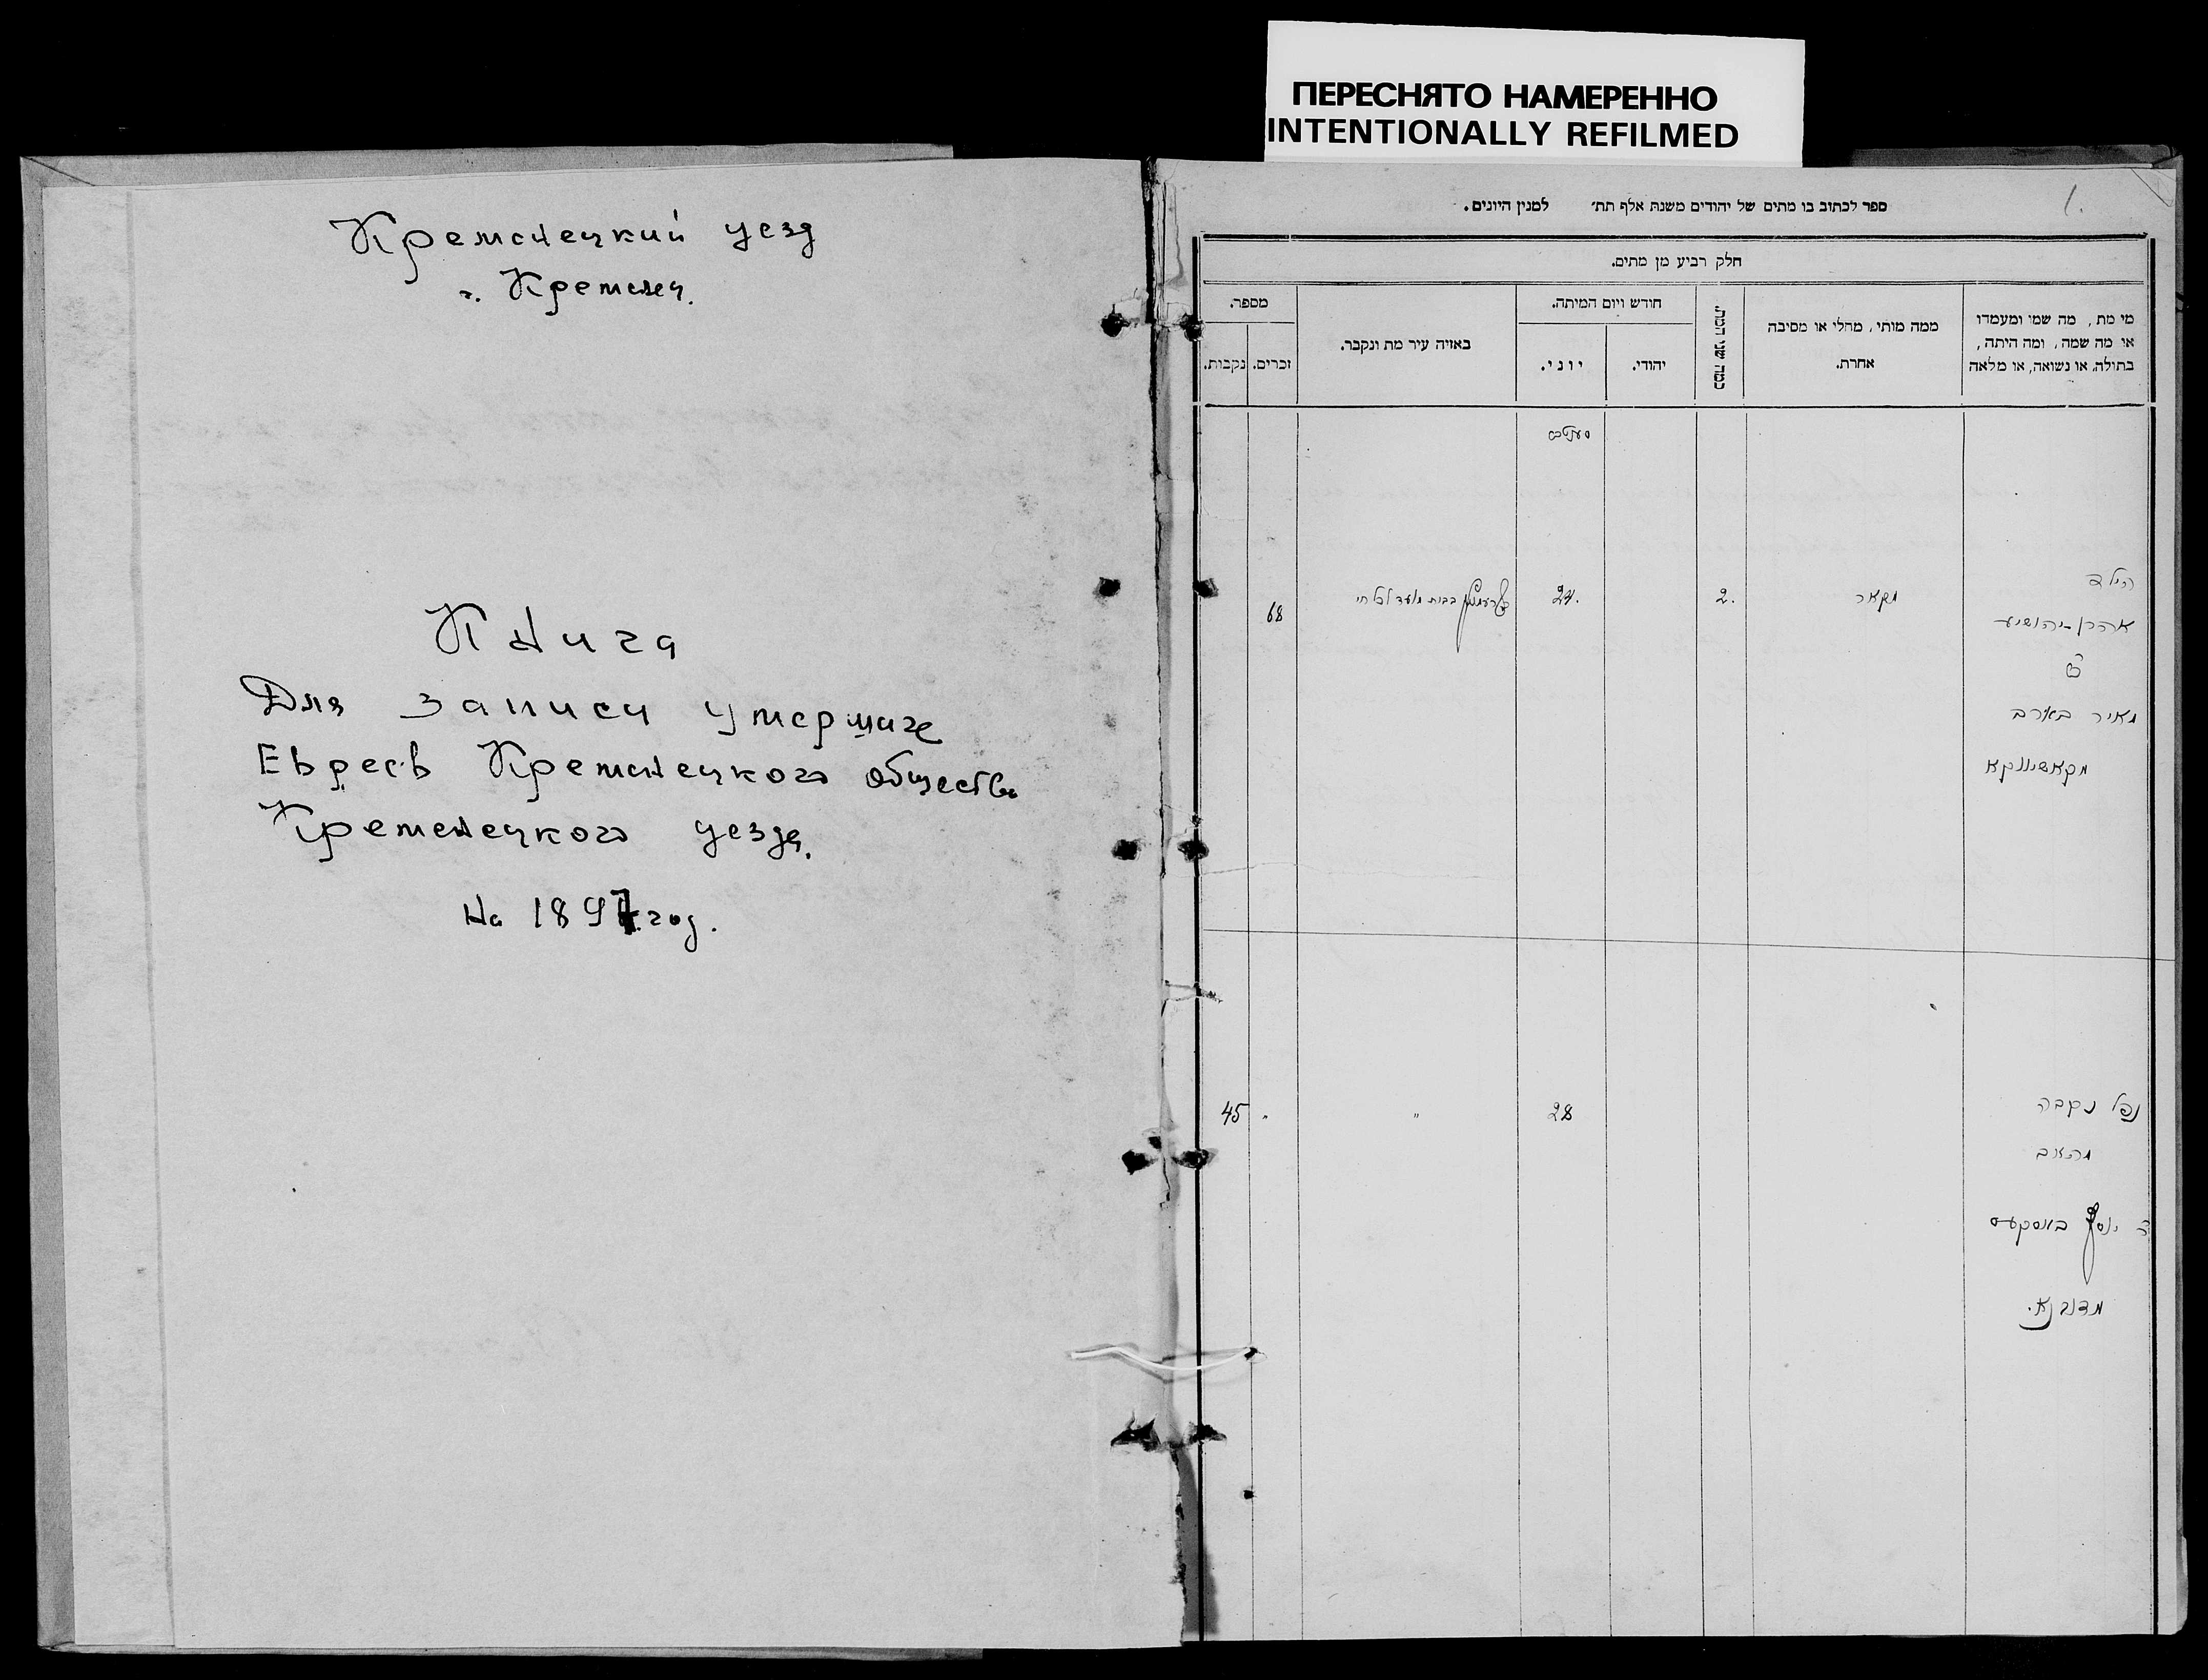 ПЕРЕСНЯТО НАМЕРЕННО
INTENTIONALLY REFILMED
Кременецкий уезд
г. Кременец.
Книга
Для записи умерших
Евреев Кременецкого общества
Кременецкого уезда.
На 1897 год.
1.
ספר לכתוב בו מתים של יהודים משנת אלף תת׳ למנין היונים.
חלק רביע מן מתים.
מי מת, מה שמו ומעמדו
או מה שמה, ומה היתה,
בתולה, או נשואה, או מלאה
ממה מותי, מחלי או מסיבה
אחרת.
כמה שני המת.
חודש ויום המיתה.
יהודי.
יוני.
באיזה עיר מת ונקבר.
מספר.
זכרים.
נקבות.
הילד
אהרן-יהושיע
ב"ר
מאיר בארב
2.
24.
בבית מועד לכל חי
68
נפל נקבה
מהאב
ר' יוסף באסקעס
מדובנא.
28
"
"
45